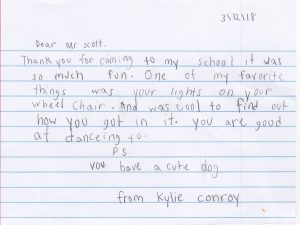 3/12/18
Dear Mr Scott.
Thank you for coming to my school it was
so much fun. One of my favorite
things was your lights on your
wheel chair. And was cool to find out
how you got in it. you are good
at danceing to.
P.S.
you have a cute dog
from Kylie Conroy